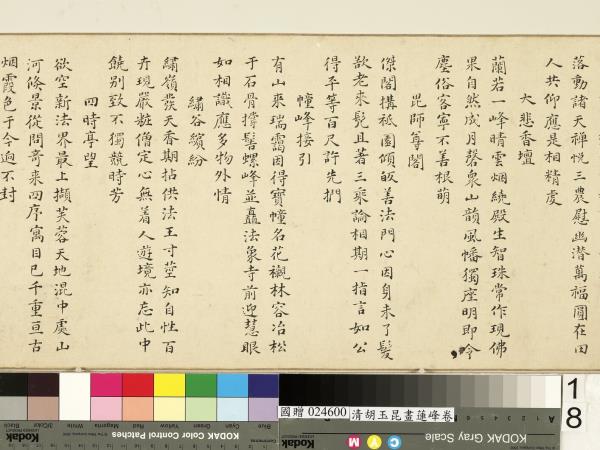 落動諸天禪悦三農慰幽潛萬福圓在田
人共仰應是相精虔
大悲香壇
蘭若一峰晴雲烟繞殿生智珠常作現佛
果自然成月磬泉山韻風幡獨座明即今
塵俗客寧不善根萌
毘師尊閣
傑閣構祗園頌皈善法門心因身未了髮
欲老来髡且著三乘論相期一指言如公
得平等百尺許先捫
幢峰接引
有山来瑞靄因得寶幢名花襯林容冶松
于石骨撐髻螺峰並矗法象寺前迎慧眼
如相識應多物外情
繡谷繽紛
繡嶺發天香期拈供法王寸莖知自性百
卉現嚴粧僧定心無着人遊境亦忘此中
饒别致不獨競時芳
四時亭望
欲空新法界最上擷芙蓉天地混中處山
河倏景從問奇来四序寓目已千重亘古
烟霞色于今逈不封
國贈 024600 清胡玉昆畫蓮峰卷
18
Kodak
KODAK Color Control Patches
KODAK Gray Scale
C Y M
Black
3/Color
White
Magenta
Red
Yellow
Green
Cyan
Blue
A